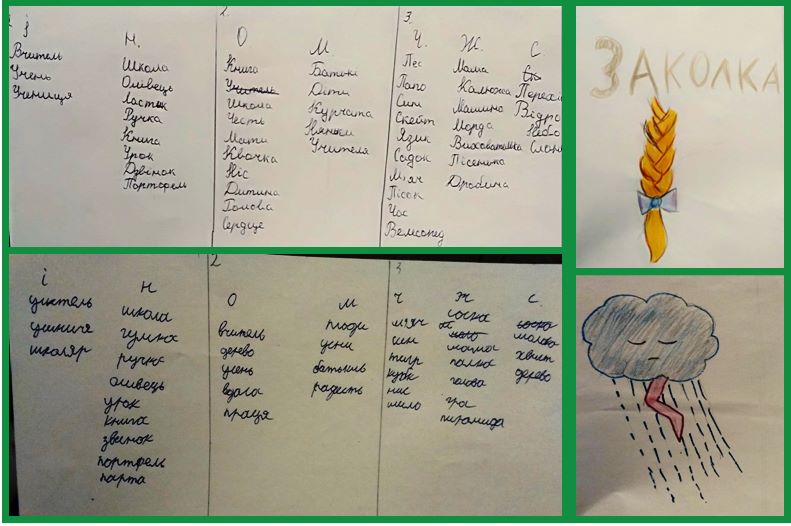 1
і Н.
Вчитель
Учень
Учениця
Школа
Олівець
Ластик
Ручка
Книга
Урок
Дзвінок
Портфель
2.
О М
Книга
Учитель
Школа
Честь
Мати
Квочка
Ніс
Дитина
Голова
Сердце
Батьки
Діти
Курчата
Няньки
Учителя
3.
Ч. Ж. С
Пес
Папо
Син
Скейт
Язик
Садок
М'яч
Пісок
Час
Велосопед
Мама
Калюжа
Машина
Морда
Вихователька
Пісенька
Дробина
Відро
Небо
ЗАКОЛКА
і Н
учитель
учениця
школяр
школа
гумка
ручка
олівець
урок
книга
звінок
портфель
парта
2
О М
вчитель
дерево
учень
вдача
праця
люди
учні
батьки
радість
3
Ч Ж С.
м'яч
син
тигр
кубік
ніс
соска
мама
палка
голова
гра
пирамида
соско
молоко
хвіст
дерево